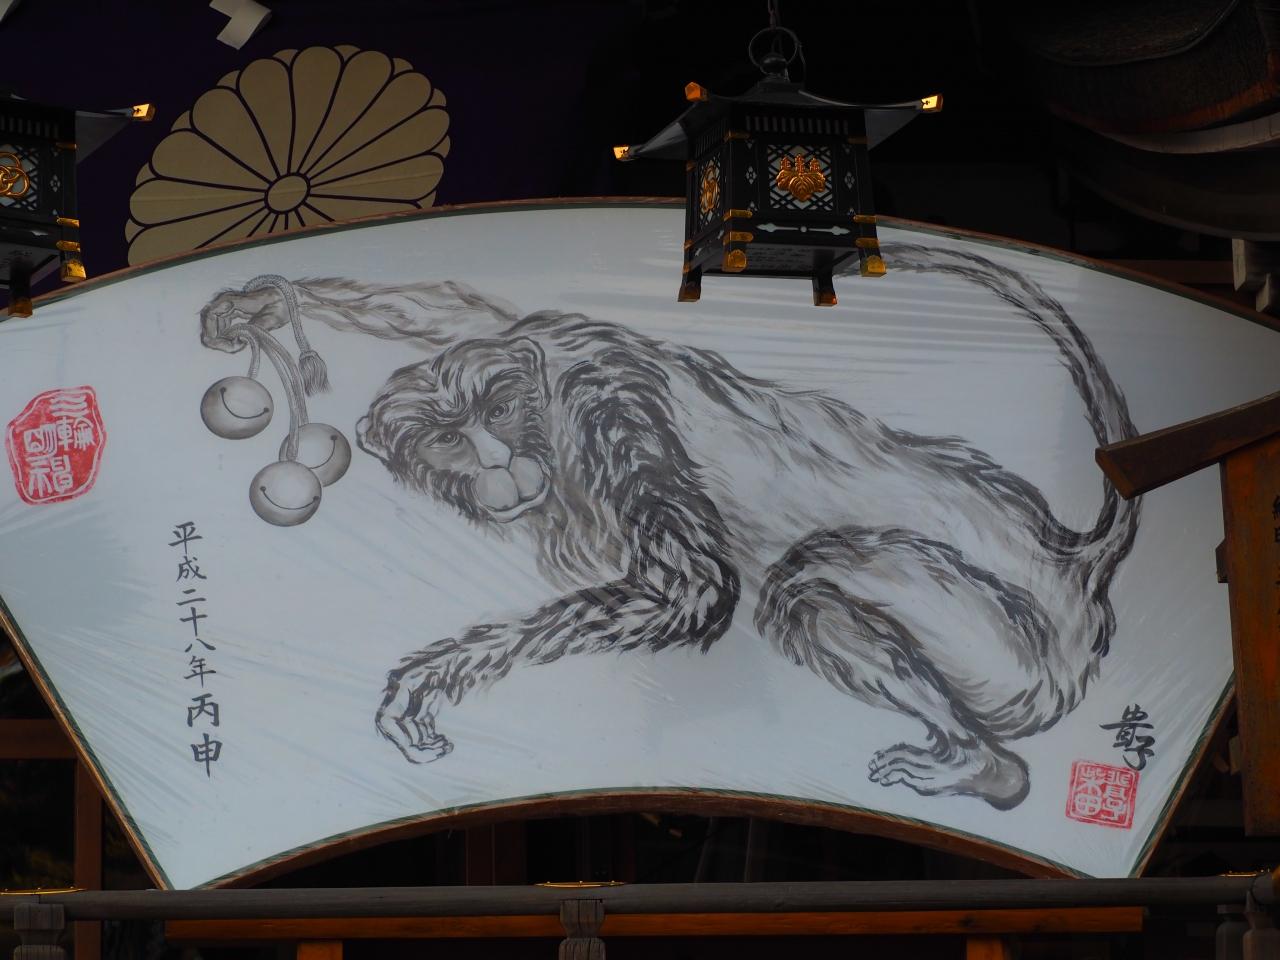 三輪
明神
平成二十八年 丙申
貴子